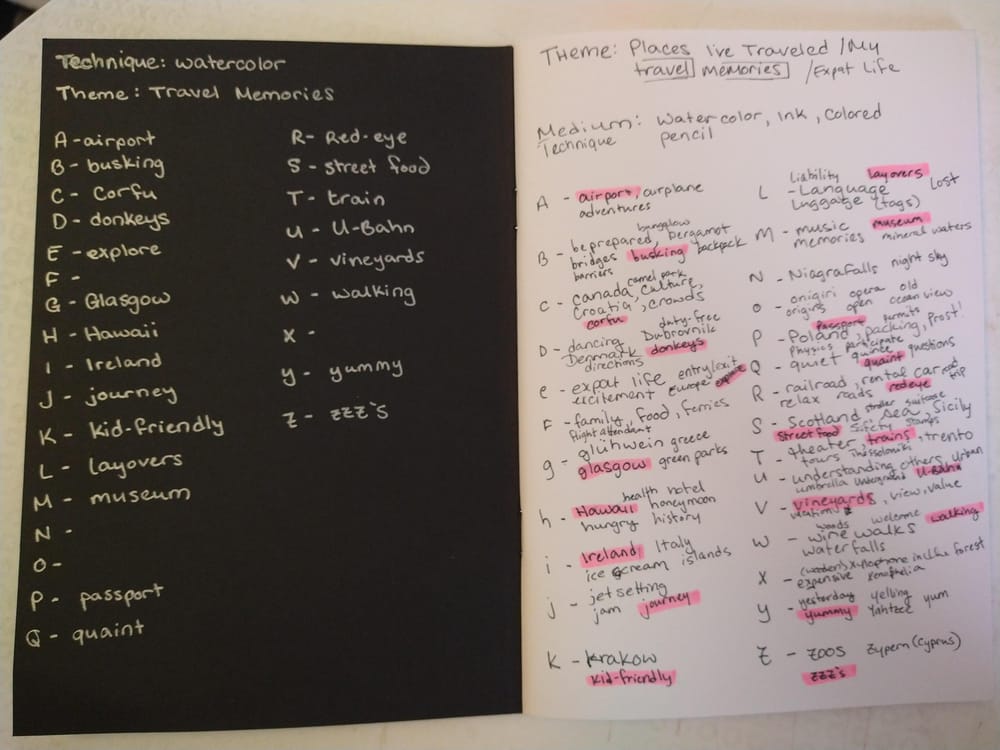 Technique: watercolor
Theme: Travel Memories
A - airport
B - busking
C - Corfu
D - donkeys
E - explore
F -
G - Glasgow
H - Hawaii
I - Ireland
J - journey
K - kid-friendly
L - layovers
M - museum
N -
O -
P - passport
Q - quaint
R - Red-eye
S - street food
T - train
U - U-Bahn
V - vineyards
W - walking
X -
y - yummy
Z - zzz's
Theme: Places I've Traveled / My
travel memories / Expat Life
Medium: Watercolor, Ink, Colored
Technique pencil
A - airport, airplane
adventures
bungalow
B - be prepared, bergamot
bridges busking backpack
barriers
camel park
C - Canada, culture,
Croatia, crowds
corfu
duty-free
D - dancing Dubrovnik
Denmark donkeys
directions
e - expat life entry/exit
excitement Europe explore
F - family, food, ferries
flight attendant
glühwein greece
g - glasgow green parks
health hotel
h - Hawaii honeymoon
hungry history
i - Ireland Italy
ice cream islands
j - jet setting
jam journey
K - Krakow
kid-friendly
Liability layovers
L - Language Lost
Luggage (tags)
M - music museum
memories mineral waters
N - Niagra Falls night sky
O - onigiri opera old
origins open ocean view
Passport permits
P - Poland, packing, Prost!
Physics participate
Q - quiet quince quaint questions
R - railroad, rental car road
relax roads redeye trip
stroller suitcase
S - Scotland, sea, Sicily
Street food safety stamps
T - theater, trains, trento
tours Thessaloniki
U - understanding others, urban
umbrella underground U-Bahn
V - vineyards, view, value
woods welcome walking
W - wine walks
waterfalls
(wooden) xylophone in the forest
X - expensive
yesterday yelling
y - yummy Yahtzee yum
Z - zoos Zypern (Cyprus)
zzz's